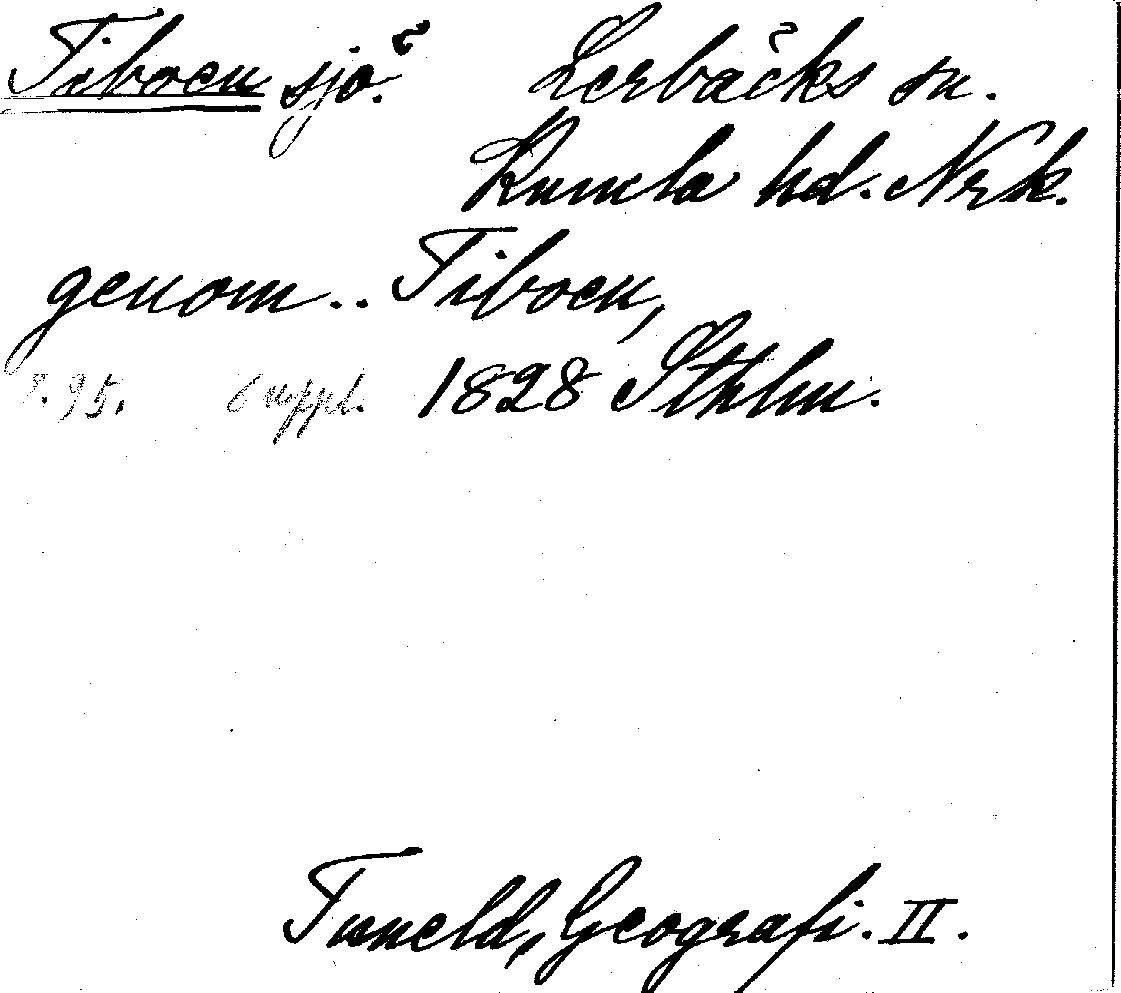 Tiboen sjö. Lerbäcks sn.
Kumla hd. Nrk.
genom .. Tiboen,
s. 95. Suppl. 1828 Sthlm.
Tuneld, Geografi. II.